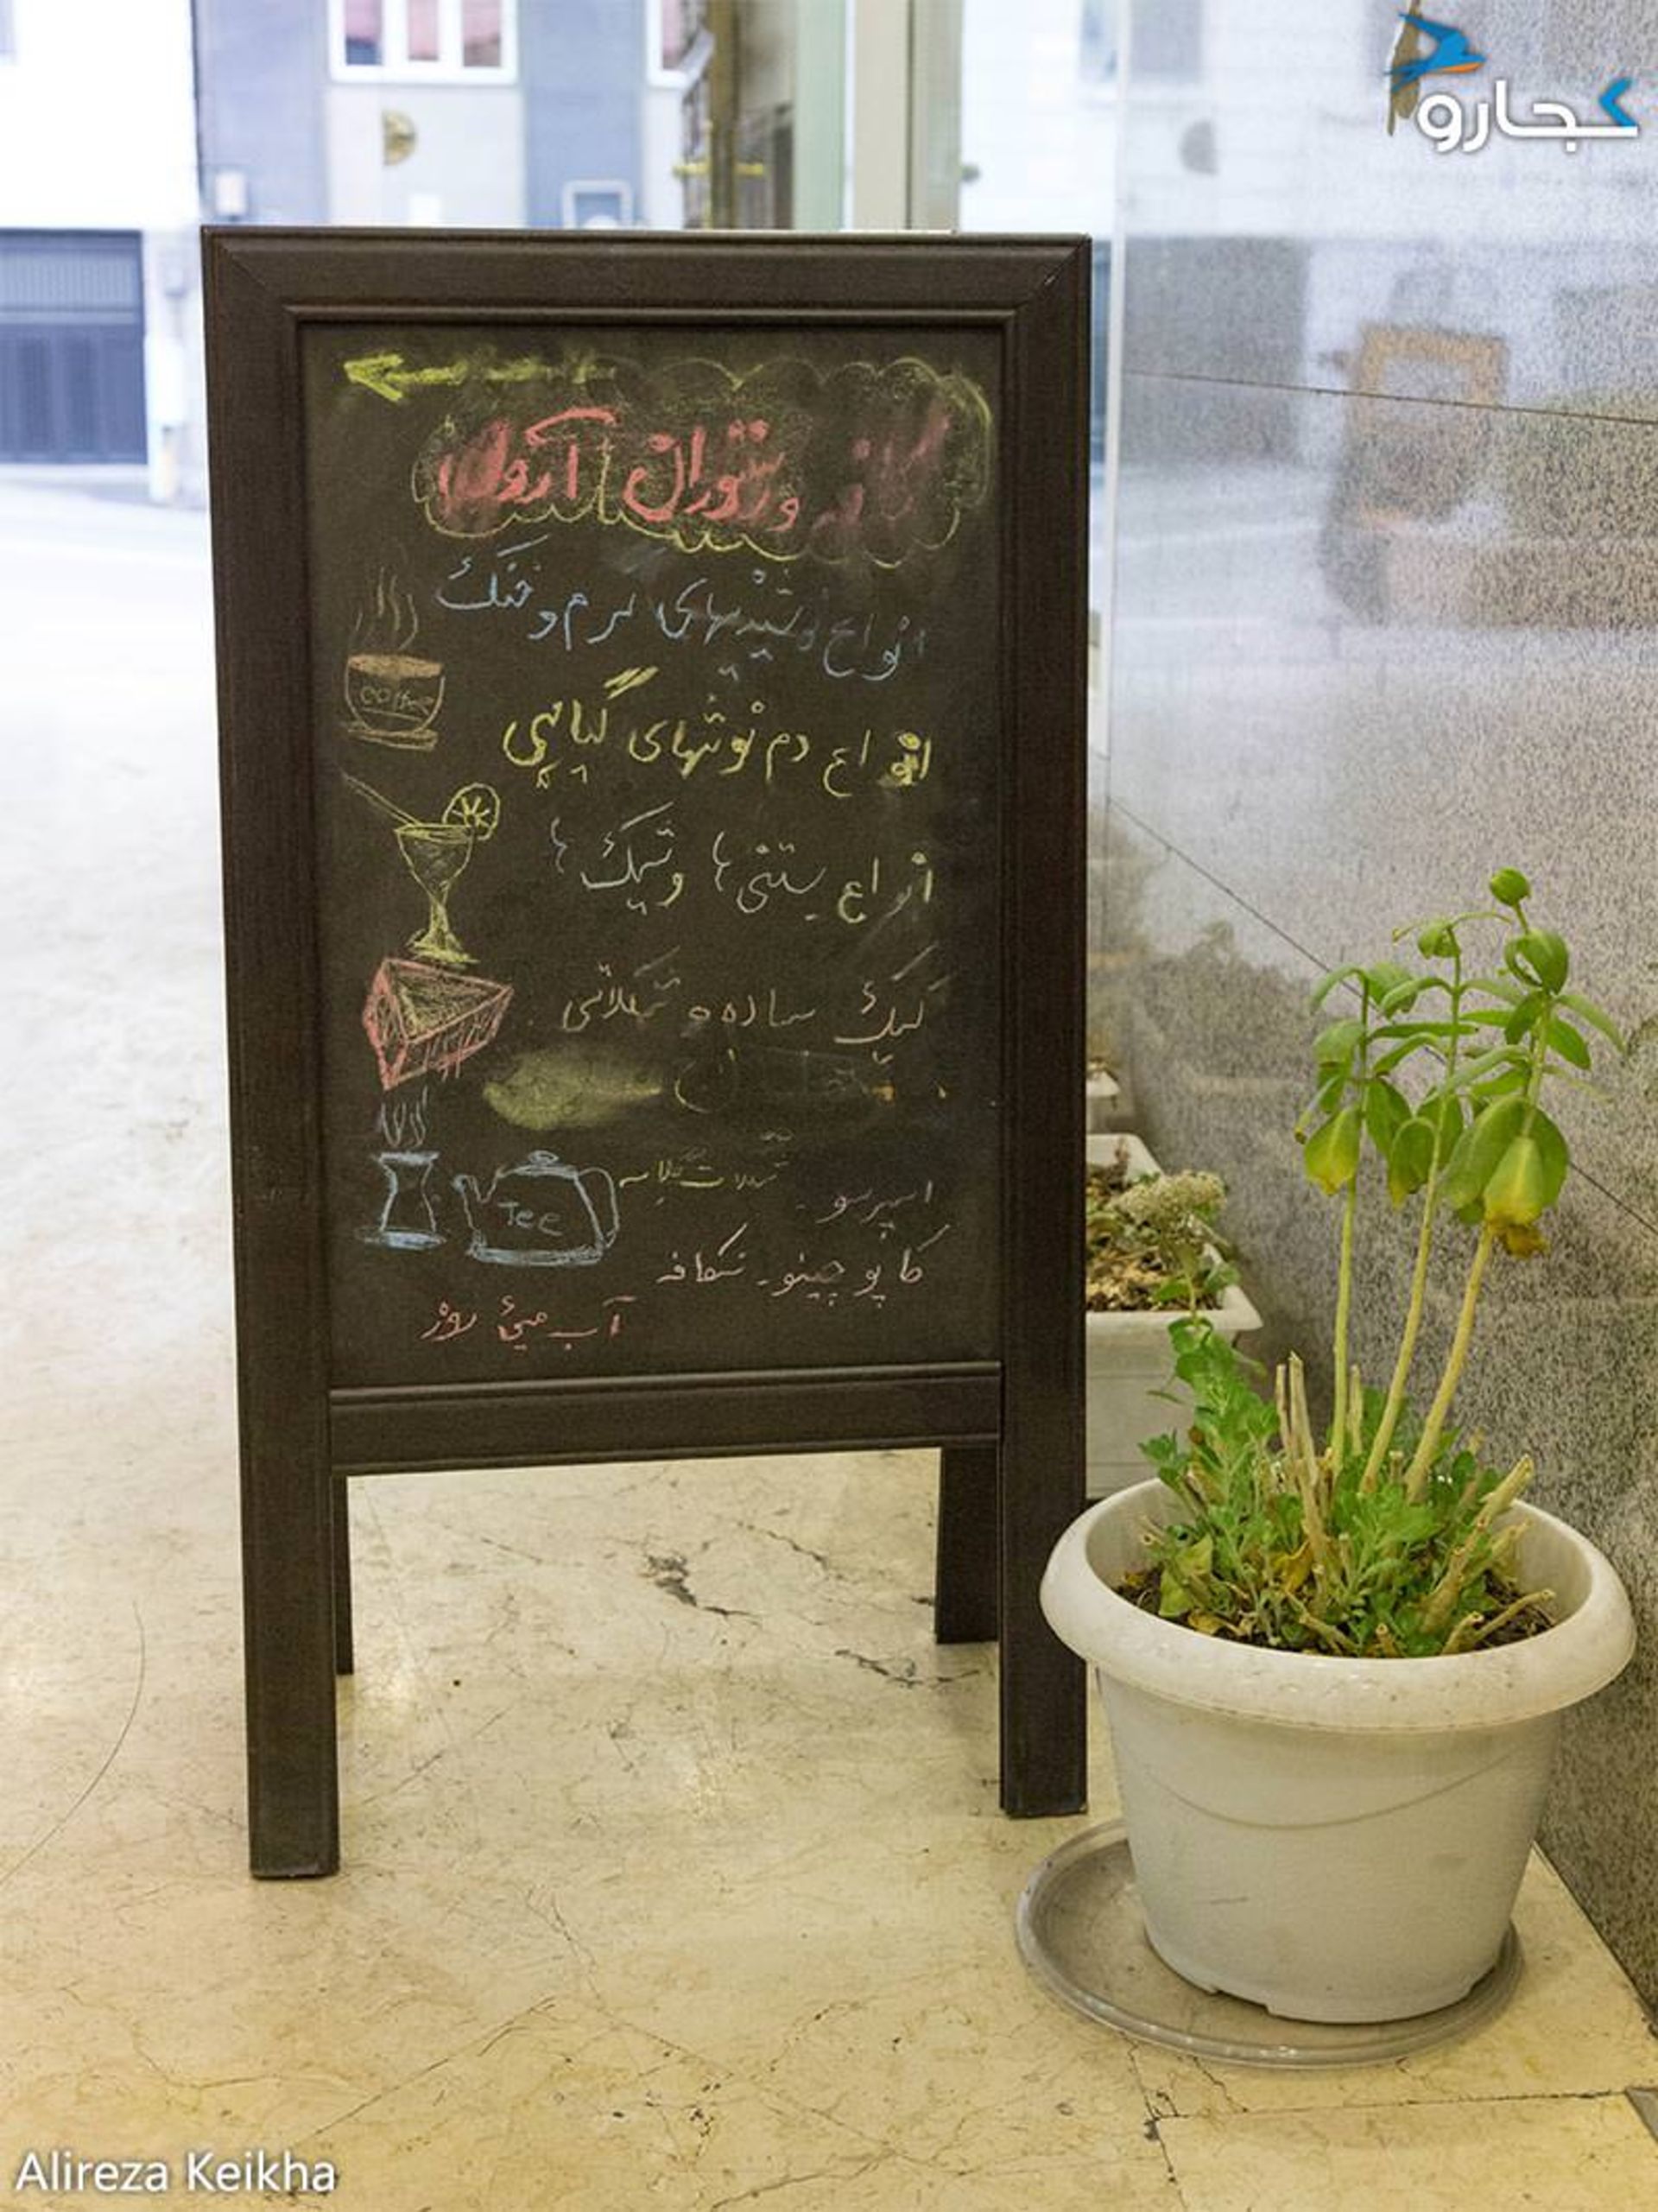 کجارو
کافه رستوران آرون
انواع نوشیدنیهای گرم و خنک
انواع دم نوشهای گیاهی
انواع بستنی ها و شیک ها
coffee
کیک ساده و شکلاتی
اسپرسو -
Tee
کاپوچینو - نسکافه
آب میوه روز
Alireza Keikha